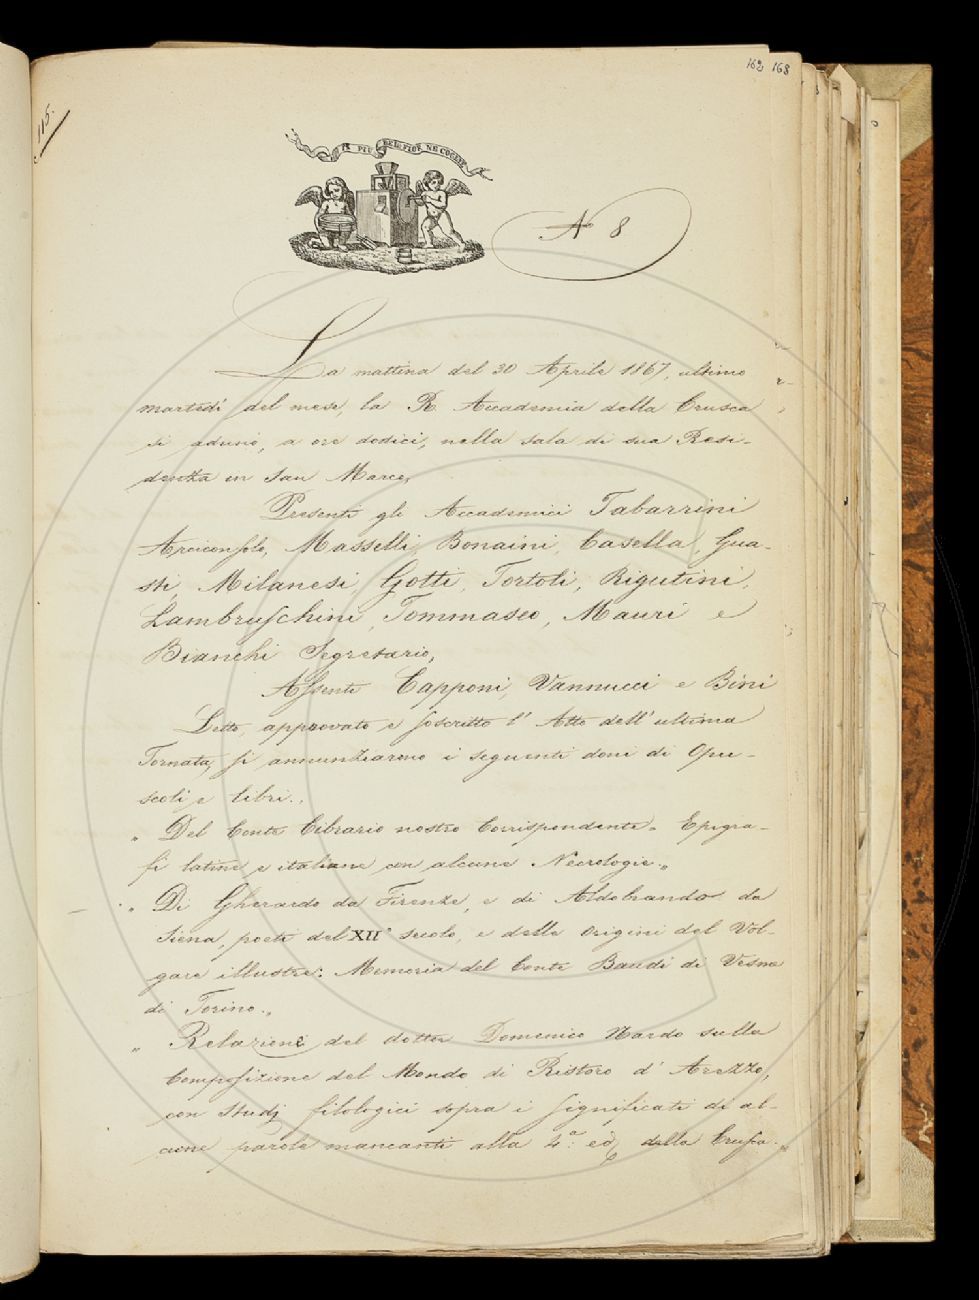 162 168
115.
IL PIÙ BEL FIOR NE COGLIE
N 8
La mattina del 30 Aprile 1867, ultimo
martedì del mese, la R. Accademia della Crusca
si adunò, a ore dodici, nella sala di sua Resi-
denza in San Marco,
Presenti gli Accademici Tabarrini
Arciconsolo, Masselli, Bonaini, Casella, Gua-
sti, Milanesi, Gotti, Tortoli, Rigutini,
Lambruschini, Tommaseo, Mauri e
Bianchi Segretario,
Assenti Capponi, Vannucci e Bini
Letto, approvato e soscritto l'Atto dell'ultima
Tornata, si annunziarono i seguenti doni di Opu-
scoli e libri.
„ Del Conte Cibrario nostro Corrispondente „ Epigra-
fi latine e italiane con alcune Necrologie. „
„ Di Gherardo da Firenze, e di Aldobrando da
Siena, poeti del XII° secolo, e delle origini del Vol-
gare illustre: Memoria del Conte Baudi di Vesme
di Torino. „
„ Relazione del dottor Domenico Nardo sulla
Composizione del Mondo di Ristoro d'Arezzo,
con studj filologici sopra i significati di al-
cune parole mancanti alla 4.ª ed. della Crusca. „